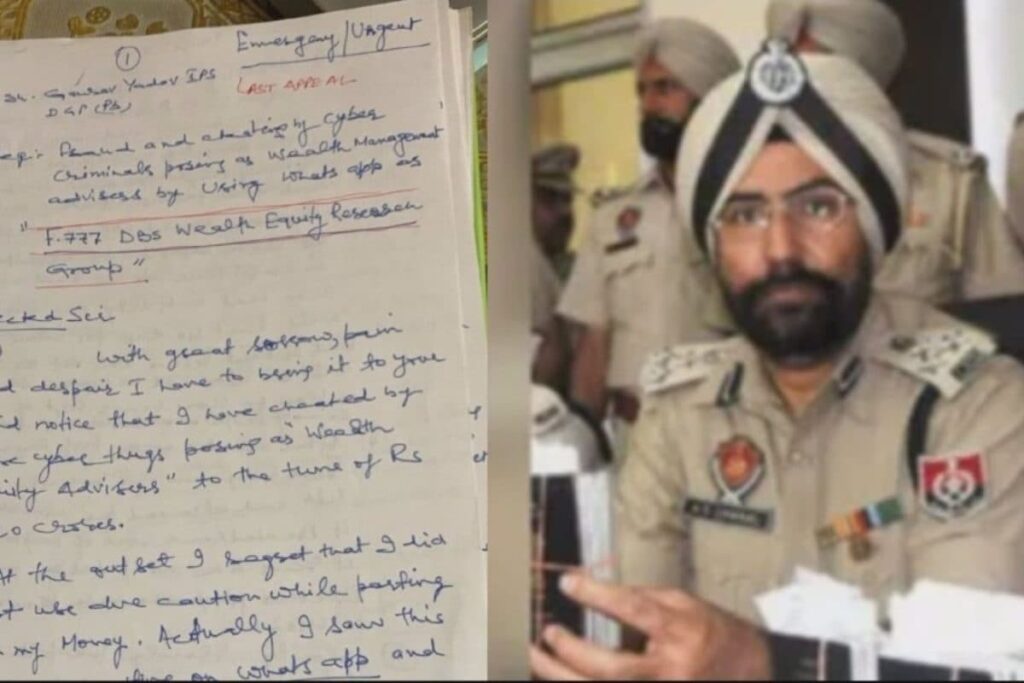 1
Emergency/Urgent
Sh. Gaurav Yadav IPS
LAST APPEAL
DGP (Pb)
Fraud and cheating by cyber
criminals posing as Wealth Management
advisers by using whats app as
"F.777 DBS Wealth Equity Research
Group"
ected Sir
With great sorrow, pain
d despair I have to bring it to your
d notice that I have cheated by
cyber thugs posing as "Wealth
uity Advisers" to the tune of Rs
0 crores.
At the out set I regret that I did
t use due caution while parting
my Money. Actually I saw this
on whats app and